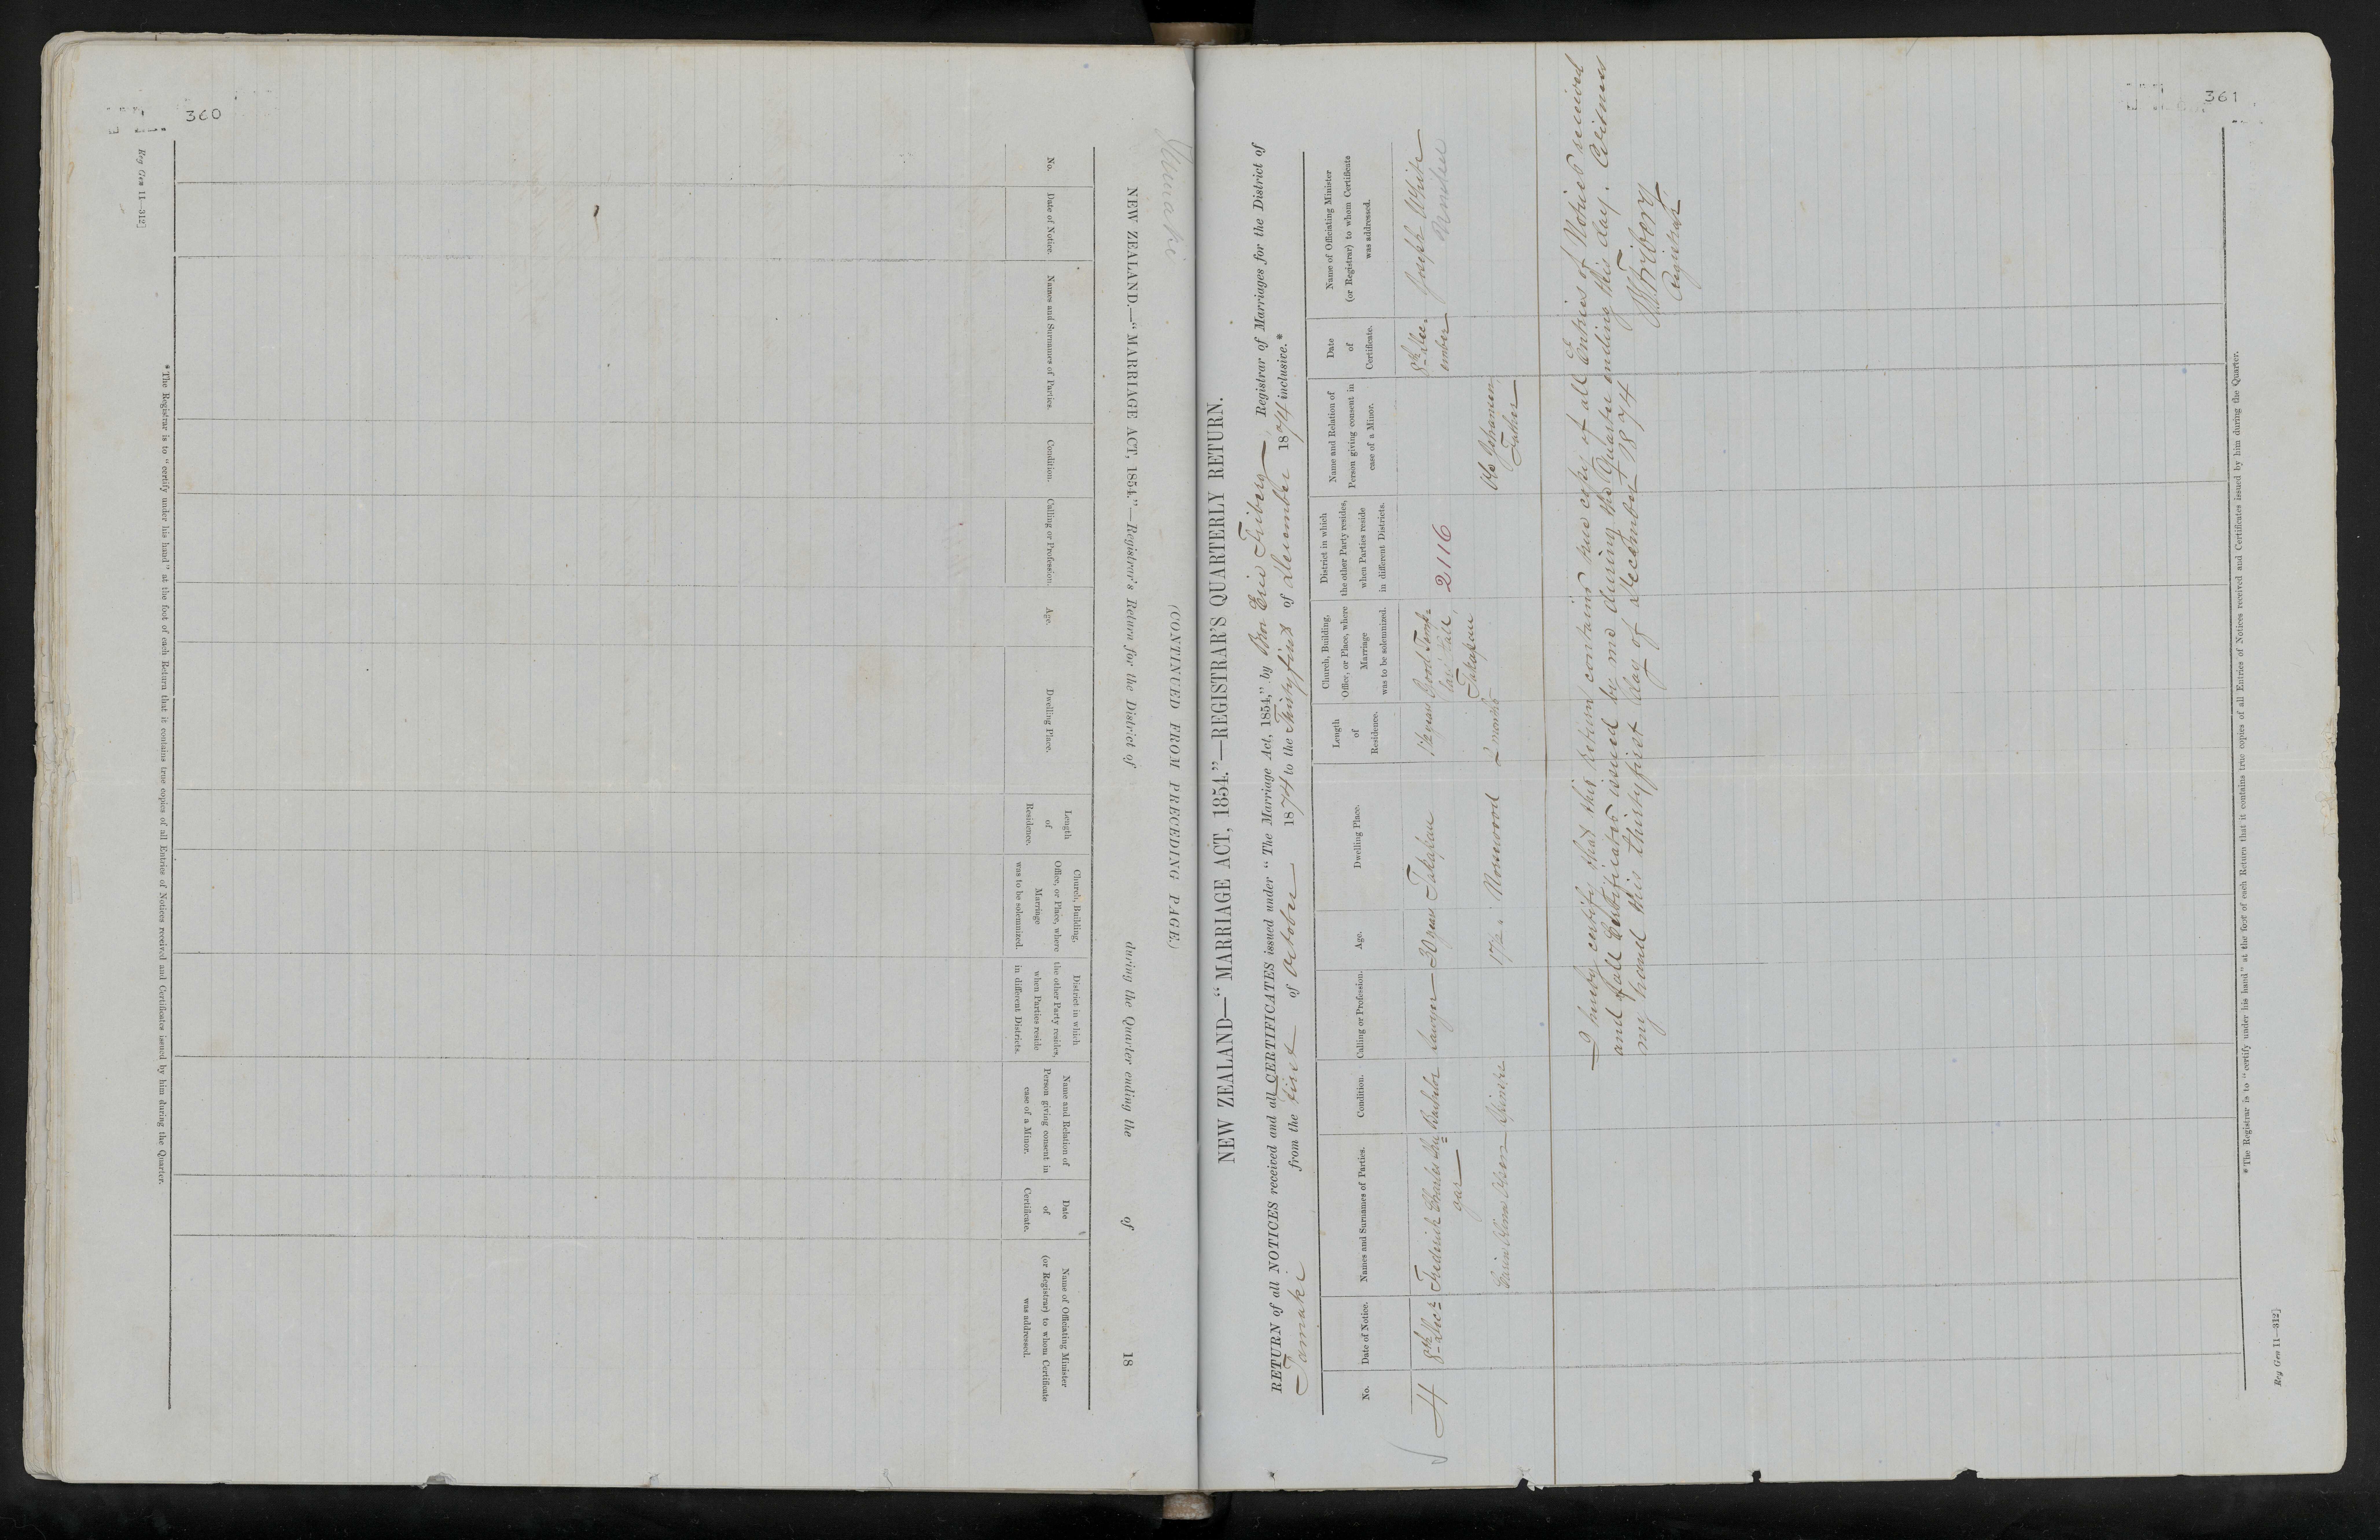 360
Reg Gen 11—312]
NEW ZEALAND.—“MARRIAGE ACT, 1854.”—Registrar's Return for the District of during the Quarter ending the of 18
(CONTINUED FROM PRECEDING PAGE.)
No.
Date of Notice.
Names and Surnames of Parties.
Condition.
Calling or Profession.
Age.
Dwelling Place.
Length
of
Residence.
Church, Building,
Office, or Place, where
Marriage
was to be solemnized.
District in which
the other Party resides,
when Parties reside
in different Districts.
Name and Relation of
Person giving consent in
case of a Minor.
Date
of
Certificate.
Name of Officiating Minister
(or Registrar) to whom Certificate
was addressed.
* The Registrar is to “certify under his hand” at the foot of each Return that it contains true copies of all Entries of Notices received and Certificates issued by him during the Quarter.
361
NEW ZEALAND—“MARRIAGE ACT, 1854.”—REGISTRAR'S QUARTERLY RETURN.
RETURN of all NOTICES received and all CERTIFICATES issued under “The Marriage Act, 1854,” by Bror Eric Friberg, Registrar of Marriages for the District of
Tamaki from the first of October 1874 to the Thirtyfirst of December 1874 inclusive.*
No.
Date of Notice.
Names and Surnames of Parties.
Condition.
Calling or Profession.
Age.
Dwelling Place.
Length
of
Residence.
Church, Building,
Office, or Place, where
Marriage
was to be solemnized.
District in which
the other Party resides,
when Parties reside
in different Districts.
Name and Relation of
Person giving consent in
case of a Minor.
Date
of
Certificate.
Name of Officiating Minister
(or Registrar) to whom Certificate
was addressed.
4
8th Decr
Frederick Charles
gar
Bachelor
30 years
Takapau
1½ years
Good Temp-
lars Hall,
Takapau
2116
8th Dec-
ember
Joseph White
Spinster
17½ "
Norsewood
2 months
Johansen
Father
I hereby certify that this return contains true copies of all Entries of Notices received
and of all Certificates issued by me during the Quarter ending this day. Witness
my hand this thirtyfirst day of December 1874
BEFriberg
Registrar
* The Registrar is to “certify under his hand” at the foot of each Return that it contains true copies of all Entries of Notices received and Certificates issued by him during the Quarter.
Reg Gen 11—312]